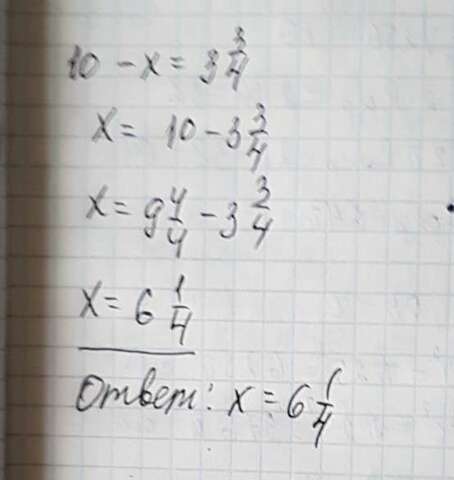 10 - x = 3 3/4
x = 10 - 3 3/4
x = 9 4/4 - 3 3/4
x = 6 1/4
Ответ: x = 6 1/4